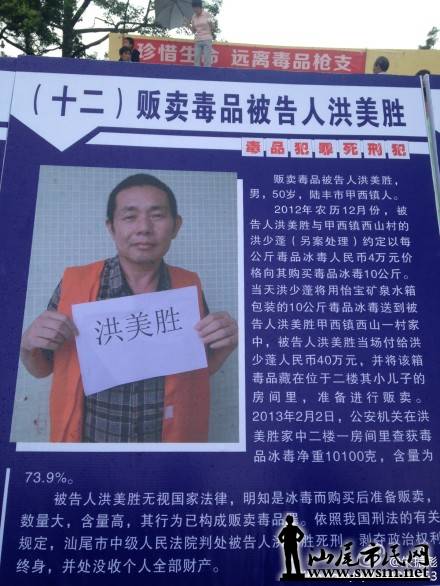 珍惜生命 远离毒品枪支
（十二）贩卖毒品被告人洪美胜
毒品犯罪死刑犯
洪美胜
贩卖毒品被告人洪美胜，
男，50岁，陆丰市甲西镇人。
2012年农历12月份，被
告人洪美胜与甲西镇西山村的
洪少蓬（另案处理）约定以每
公斤毒品冰毒人民币4万元价
格向其购买毒品冰毒10公斤。
当天洪少蓬将用怡宝矿泉水箱
包装的10公斤毒品冰毒送到被
告人洪美胜甲西镇西山一村家
中，被告人洪美胜当场付给洪
少蓬人民币40万元，并将该箱
毒品藏在位于二楼其小儿子的
房间里，准备进行贩卖。
2013年2月2日，公安机关在洪
美胜家中二楼一房间里查获毒
品冰毒净重10100克，含量为
73.9%。
被告人洪美胜无视国家法律，明知是冰毒而购买后准备贩卖，
数量大，含量高，其行为已构成贩卖毒品罪。依照我国刑法的有关
规定，汕尾市中级人民法院判处被告人洪美胜死刑，剥夺政治权利
终身，并处没收个人全部财产。
汕尾市民网
www.swsm.net